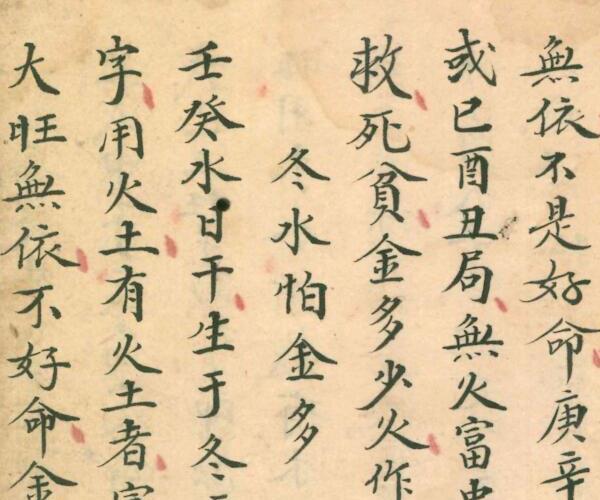 無依不是好命庚辛
或巳酉丑局無火富
救死貧金多少火作
冬水怕金多
壬癸水日干生于冬
字用火土有火土者
大旺無依不好命金